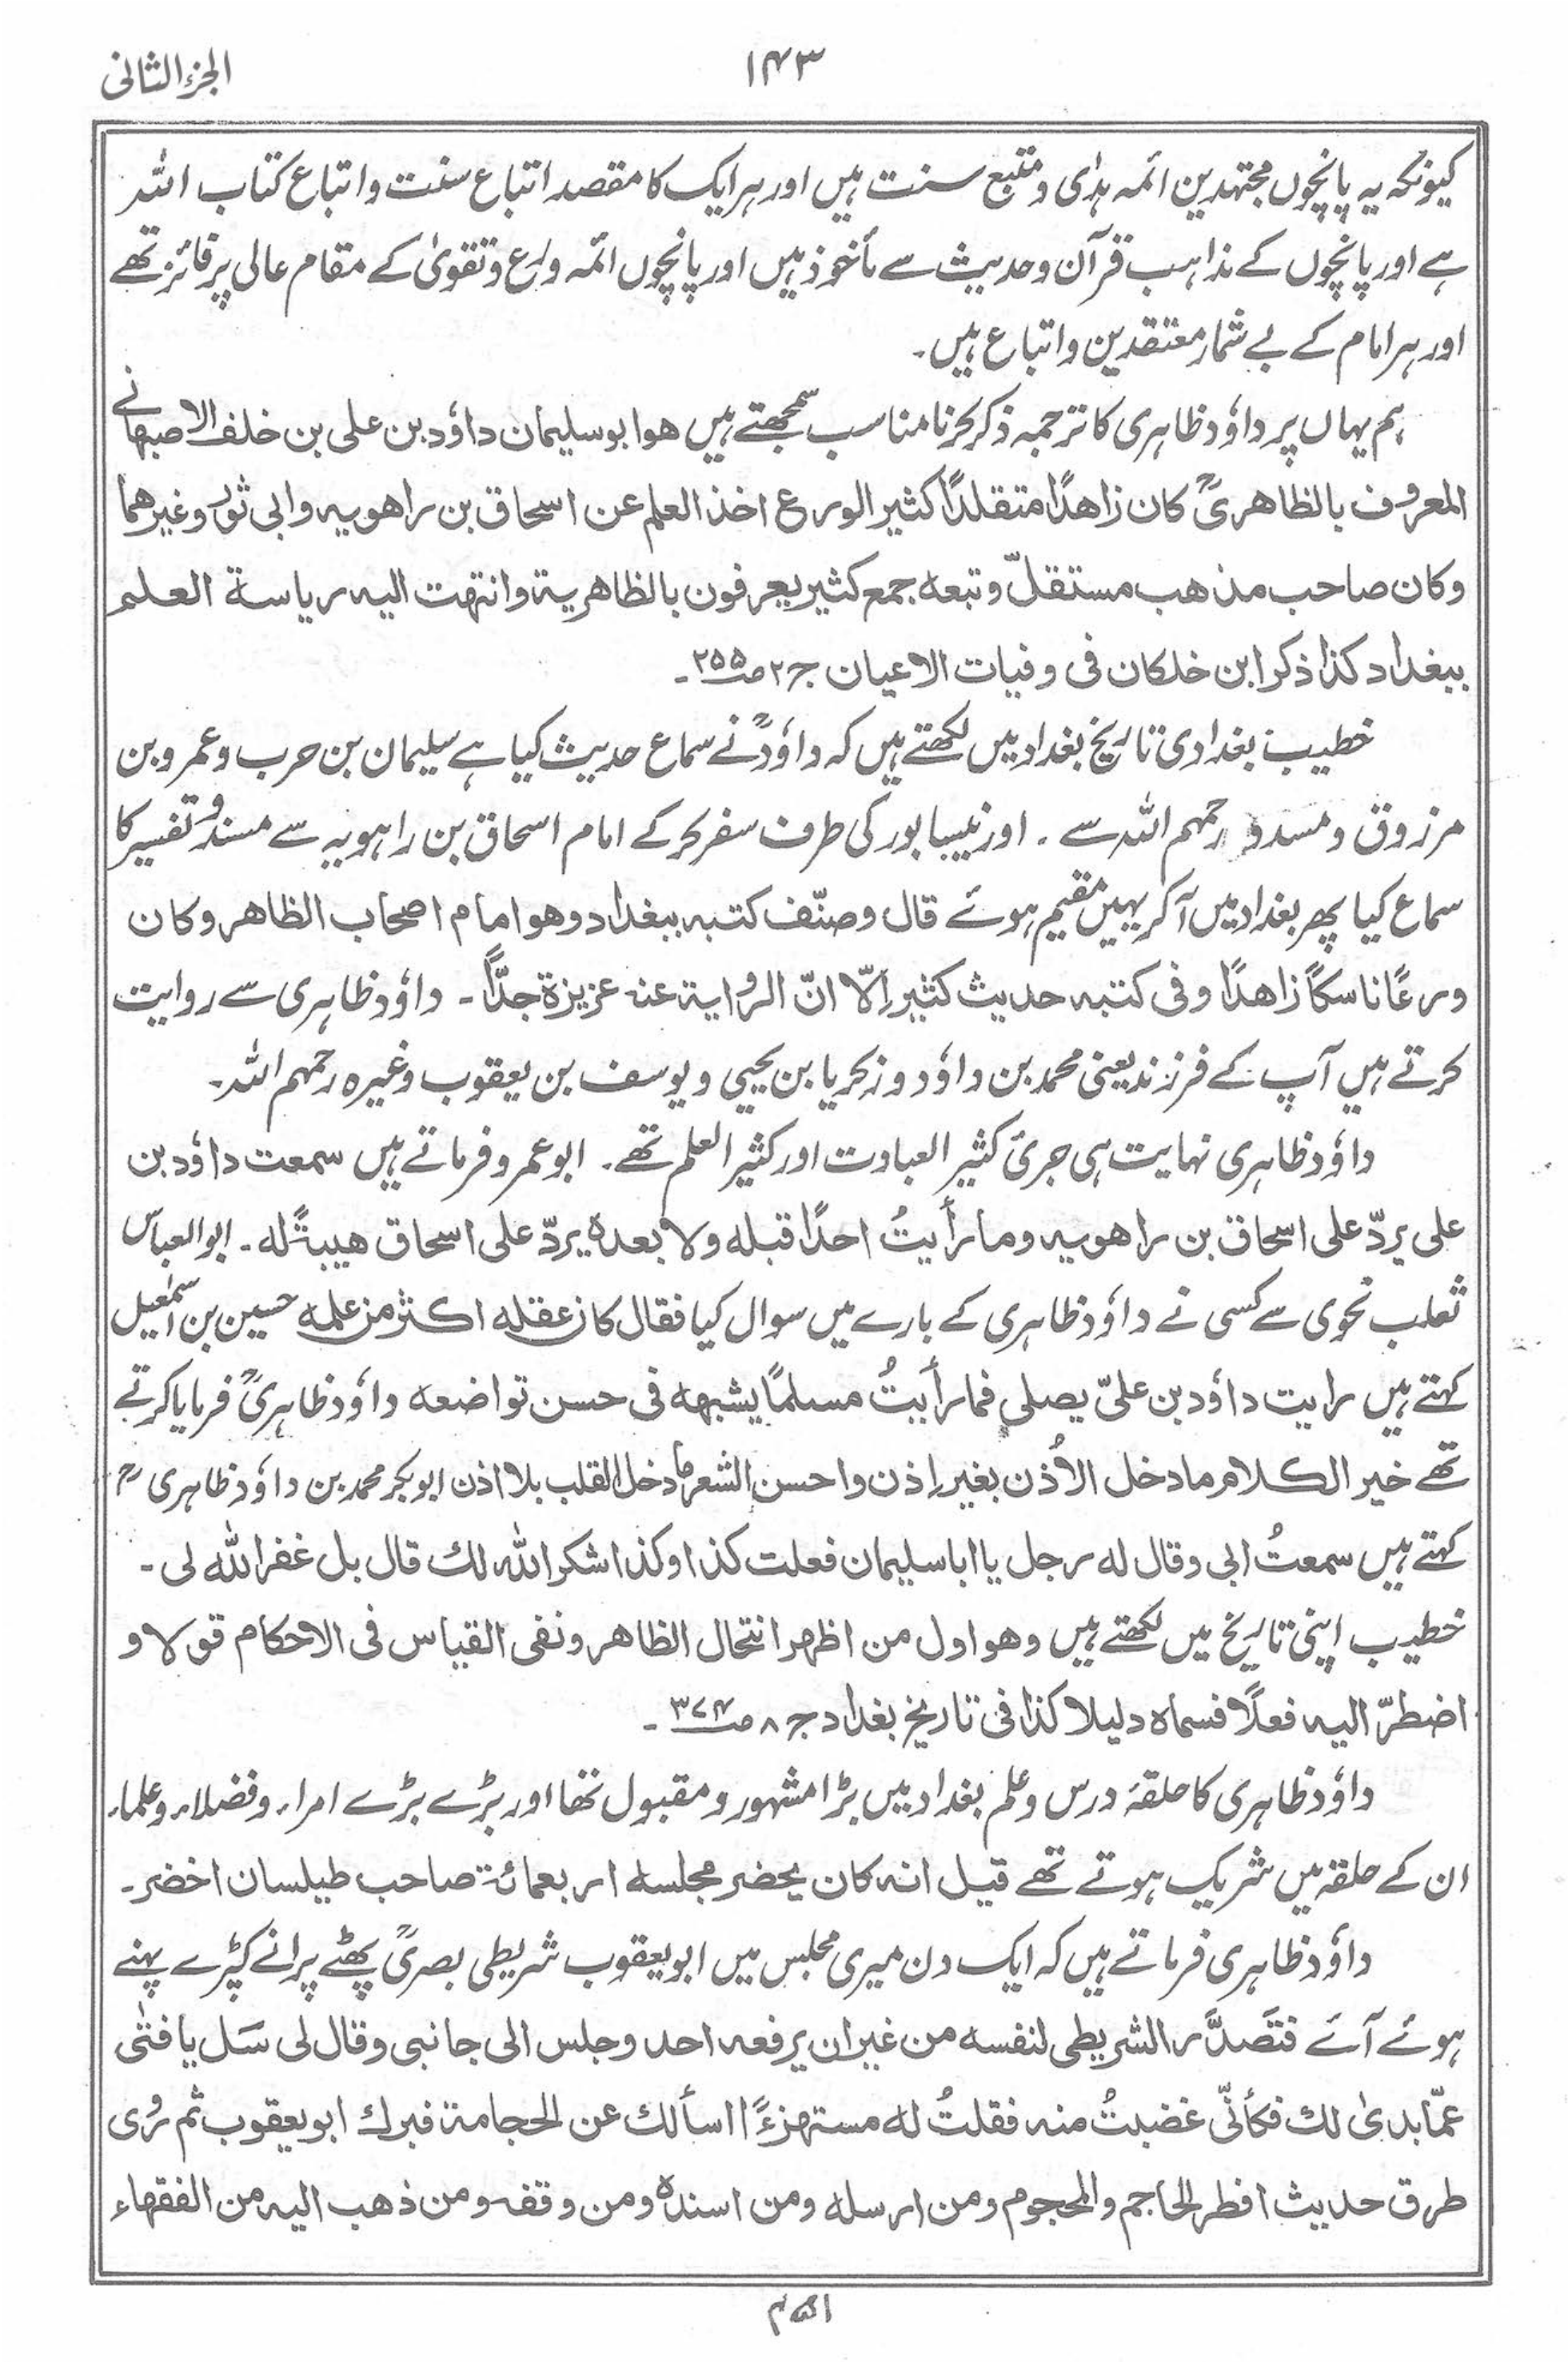 الجزء الثانی
۱۴۳
کیونکہ یہ پانچوں مجتہدین ائمہ ہدٰی و متبع سنت ہیں اور ہر ایک کا مقصد اتباع سنت و اتباع کتاب اللہ
ہے اور پانچوں کے مذاہب قرآن و حدیث سے مأخوذ ہیں اور پانچوں ائمہ ورع و تقویٰ کے مقام عالی پر فائز تھے
اور ہر امام کے بے شمار معتقدین و اتباع ہیں۔
ہم یہاں پر داؤد ظاہری کا ترجمہ ذکر کرنا مناسب سمجھتے ہیں ھو ابو سلیمان داؤد بن علی بن خلف الاصبھانے
المعروف بالظاھریؒ کان زاھدًا متقلدًا کثیر الورع اخذ العلم عن اسحاق بن راھویہ وابی ثورؒ وغیرھما
وکان صاحب مذھب مستقلّ وتبعہ جمع کثیر یعرفون بالظاھریۃ وانتہت الیہ ریاسۃ العلم
ببغداد کذا ذکر ابن خلکان فی وفیات الاعیان ج۲ ص۲۵۵۔
خطیب بغدادی تاریخ بغداد میں لکھتے ہیں کہ داؤدؒ نے سماع حدیث کیا ہے سلیمان بن حرب و عمرو بن
مرزوق و مسدد رحمہم اللہ سے ۔ اور نیسابور کی طرف سفر کرکے امام اسحاق بن راہویہ سے مسند و تفسیر کا
سماع کیا پھر بغداد میں آکر یہیں مقیم ہوئے قال وصنّف کتبہ ببغداد وھو امام اصحاب الظاھر وکان
ورعًا ناسکًا زاھدًا وفی کتبہ حدیث کثیر اِلّا انّ الروایۃ عنہ عزیزۃ جدًّا۔ داؤد ظاہری سے روایت
کرتے ہیں آپ کے فرزند یعنی محمد بن داؤد و زکریا بن یحیی و یوسف بن یعقوب وغیرہ رحمہم اللہ۔
داؤد ظاہری نہایت ہی جریٔ کثیر العبادت اور کثیر العلم تھے۔ ابو عمرو فرماتے ہیں سمعت داؤد بن
علی یردّ علی اسحاق بن راھویہ وما رأیتُ احدًا قبلہ ولا بعدہ یردّ علی اسحاق ھیبۃً لہ۔ ابوالعباس
ثعلب نحوی سے کسی نے داؤد ظاہری کے بارے میں سوال کیا فقال کان عقلہ اکثر من علمہ حسین بن اسمٰعیل
کہتے ہیں رایت داؤد بن علیّ یصلی فما رأیتُ مسلمًا یشبھہ فی حسن تواضعہ داؤد ظاہریؒ فرمایا کرتے
تھے خیر الکلام ما دخل الاُذن بغیر اِذن واحسن الشعر ما دخل القلب بلا اذن ابوبکر محمد بن داؤد ظاہری ؒ
کہتے ہیں سمعتُ ابی وقال لہ رجل یا ابا سلیمان فعلت کذا وکذا شکر اللہ لک قال بل غفر اللہ لی۔
خطیب اپنی تاریخ میں لکھتے ہیں وھو اول من اظھر انتحال الظاھر ونفی القیاس فی الاحکام قولا و
اضطرّ الیہ فعلًا فسماہ دلیلا کذا فی تاریخ بغداد ج۸ ص۳۷۴۔
داؤد ظاہری کا حلقۂ درس و علم بغداد میں بڑا مشہور و مقبول تھا اور بڑے بڑے امراء و فضلاء و علماء
ان کے حلقہ میں شریک ہوتے تھے قیل انہ کان یحضر مجلسہ اربعمائۃ صاحب طیلسان اخضر۔
داؤد ظاہری فرماتے ہیں کہ ایک دن میری مجلس میں ابو یعقوب شریطی بصریؒ پھٹے پرانے کپڑے پہنے
ہوئے آئے فتَصدَّر الشریطی لنفسہ من غیر ان یرفعہ احد وجلس الی جانبی وقال لی سَل یا فتٰی
عمّا بدیٰ لک فکأنّی غضبتُ منہ فقلتُ لہ مستہزءًا اسألک عن الحجامۃ فبرک ابو یعقوب ثم رُوی
طرق حدیث افطر الحاجم والمحجوم ومن ارسلہ ومن اسندہ ومن وقفہ ومن ذھب الیہ من الفقھاء